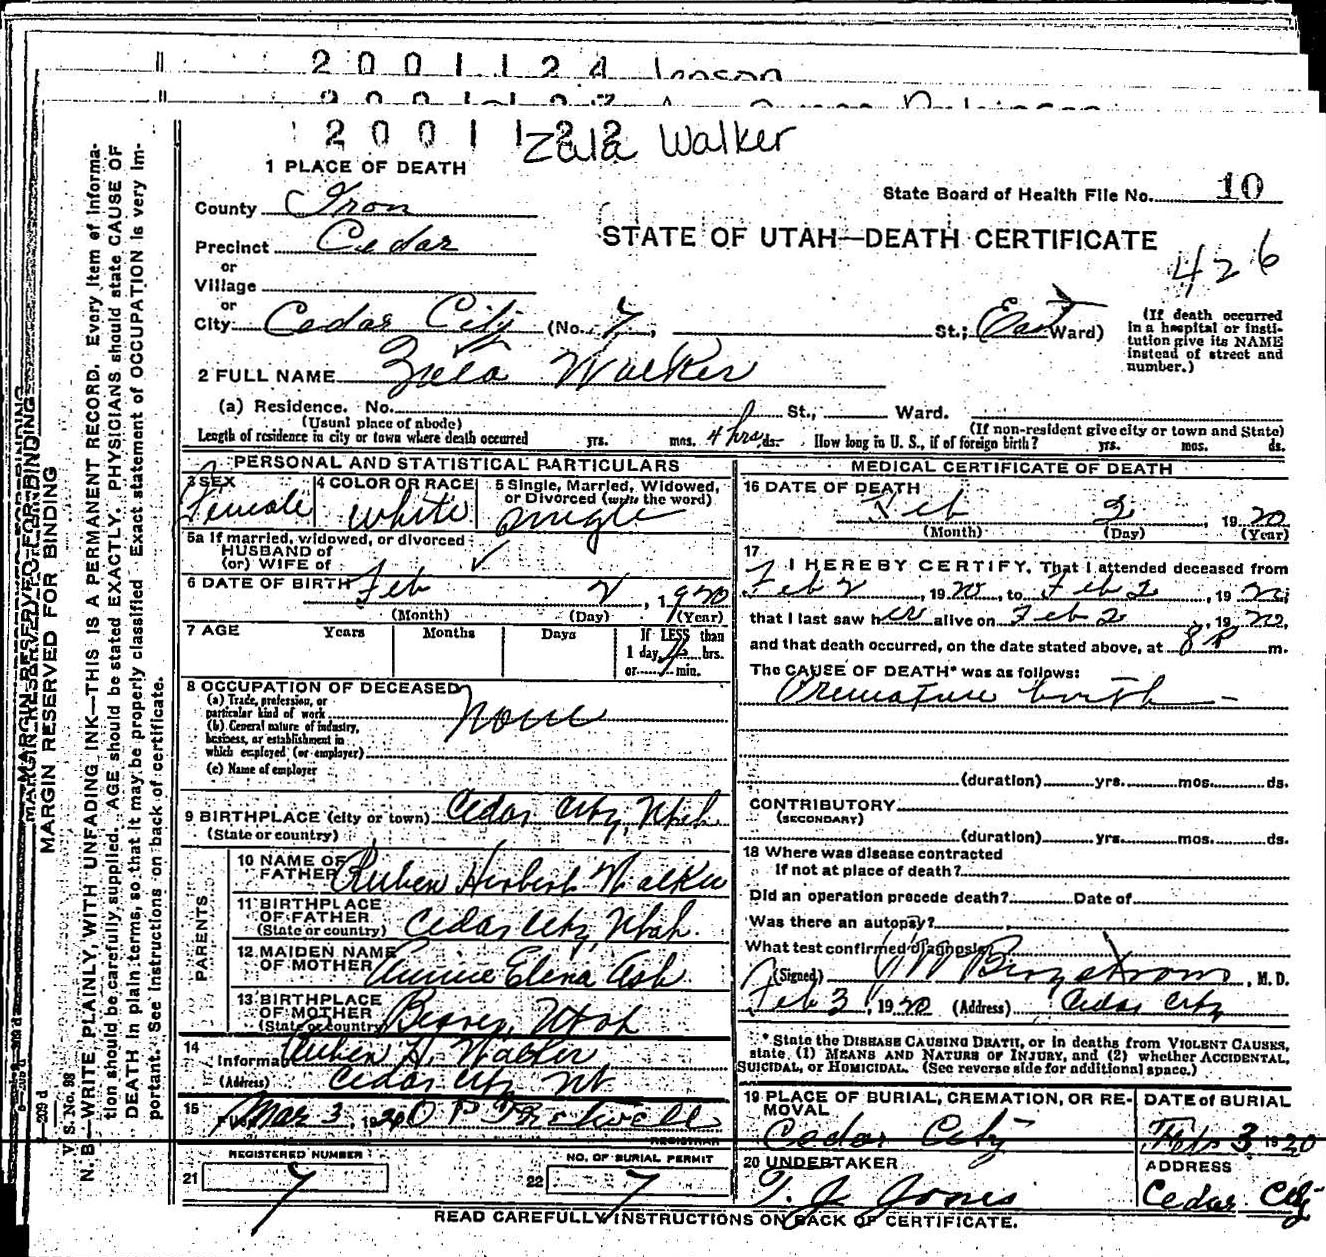 2001124
200112
200112 Zala Walker
1 PLACE OF DEATH
State Board of Health File No. 10
County Iron
STATE OF UTAH—DEATH CERTIFICATE
Precinct Cedar
426
or
Village
or
City Cedar City (No. 7, St.; East Ward)
(If death occurred in a hospital or institution give its NAME instead of street and number.)
2 FULL NAME Walker
(a) Residence. No. St., Ward.
(Usual place of abode) (If non-resident give city or town and State)
Length of residence in city or town where death occurred yrs. mos. 4 hrs. ds. How long in U. S., if of foreign birth? yrs. mos. ds.
PERSONAL AND STATISTICAL PARTICULARS
3 SEX Female
4 COLOR OR RACE White
5 Single, Married, Widowed, or Divorced (write the word) Single
5a If married, widowed, or divorced
HUSBAND of
(or) WIFE of
6 DATE OF BIRTH Feb 2, 1920
(Month) (Day) (Year)
7 AGE Years Months Days If LESS than
1 day, hrs.
or min.
8 OCCUPATION OF DECEASED
(a) Trade, profession, or
particular kind of work None
(b) General nature of industry,
business, or establishment in
which employed (or employer)
(c) Name of employer
9 BIRTHPLACE (city or town) Cedar City, Utah
(State or country)
PARENTS
10 NAME OF FATHER Ruben Herbert Walker
11 BIRTHPLACE OF FATHER (State or country) Cedar City, Utah.
12 MAIDEN NAME OF MOTHER Elena Ash
13 BIRTHPLACE OF MOTHER (State or country) Beaver, Utah
14 Informant Ruben H. Walker
(Address) Cedar City Ut
15 Filed Mar 3, 1920 O P
REGISTRAR
REGISTERED NUMBER
21 7
NO. OF BURIAL PERMIT
22 7
MEDICAL CERTIFICATE OF DEATH
16 DATE OF DEATH
Feb 2, 1920
(Month) (Day) (Year)
17
I HEREBY CERTIFY, That I attended deceased from
Feb 2, 1920, to Feb 2, 1920,
that I last saw her alive on Feb 2, 1920,
and that death occurred, on the date stated above, at 8 P m.
The CAUSE OF DEATH* was as follows:
Premature birth
(duration) yrs. mos. ds.
CONTRIBUTORY
(SECONDARY)
(duration) yrs. mos. ds.
18 Where was disease contracted
If not at place of death?
Did an operation precede death? Date of
Was there an autopsy?
What test confirmed diagnosis
(Signed) Bergstrom, M. D.
Feb 3, 1920 (Address) Cedar City
*State the DISEASE CAUSING DEATH, or in deaths from VIOLENT CAUSES,
state (1) MEANS AND NATURE OF INJURY, and (2) whether ACCIDENTAL,
SUICIDAL, or HOMICIDAL. (See reverse side for additional space.)
19 PLACE OF BURIAL, CREMATION, OR REMOVAL
Cedar City
DATE of BURIAL
Feb 3 1920
20 UNDERTAKER
T. J. Jones
ADDRESS
Cedar City
READ CAREFULLY INSTRUCTIONS ON BACK OF CERTIFICATE.
MARGIN RESERVED FOR BINDING
V. S. No. 98
N. B.—WRITE PLAINLY, WITH UNFADING INK—THIS IS A PERMANENT RECORD. Every item of information should be carefully supplied. AGE should be stated EXACTLY. PHYSICIANS should state CAUSE OF DEATH in plain terms, so that it may be properly classified. Exact statement of OCCUPATION is very important. See instructions on back of certificate.